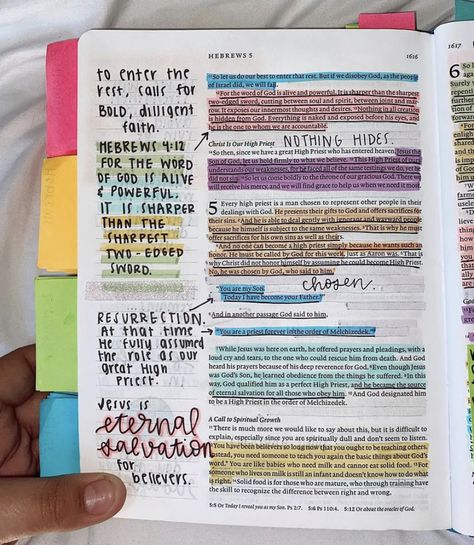 HEBREWS 5
1616
1617
to enter the
rest, calls for
BOLD, diligent
faith.
HEBREWS 4:12
FOR THE WORD
OF GOD IS ALIVE
& POWERFUL.
IT IS SHARPER
THAN THE
SHARPEST
TWO-EDGED
SWORD.
RESURRECTION.
At that time
He fully assumed
the role as our
great High
Priest.
Jesus is
eternal
salvation
for
believers.
11 So let us do our best to enter that rest. But if we disobey God, as the people
of Israel did, we will fall.
12 For the word of God is alive and powerful. It is sharper than the sharpest
two-edged sword, cutting between soul and spirit, between joint and mar-
row. It exposes our innermost thoughts and desires. 13 Nothing in all creation
is hidden from God. Everything is naked and exposed before his eyes, and
he is the one to whom we are accountable.
NOTHING HIDES.
Christ Is Our High Priest
14 So then, since we have a great High Priest who has entered heaven, Jesus the
Son of God, let us hold firmly to what we believe. 15 This High Priest of ours
understands our weaknesses, for he faced all of the same testings we do, yet he
did not sin. 16 So let us come boldly to the throne of our gracious God. There we
will receive his mercy, and we will find grace to help us when we need it most.
5 Every high priest is a man chosen to represent other people in their
dealings with God. He presents their gifts to God and offers sacrifices for
their sins. 2 And he is able to deal gently with ignorant and wayward people
because he himself is subject to the same weaknesses. 3 That is why he must
offer sacrifices for his own sins as well as theirs.
4 And no one can become a high priest simply because he wants such an
honor. He must be called by God for this work, just as Aaron was. 5 That is
why Christ did not honor himself by assuming he could become High Priest.
No, he was chosen by God, who said to him,
chosen.
"You are my Son.
Today I have become your Father."
6 And in another passage God said to him,
"You are a priest forever in the order of Melchizedek."
7 While Jesus was here on earth, he offered prayers and pleadings, with a
loud cry and tears, to the one who could rescue him from death. And God
heard his prayers because of his deep reverence for God. 8 Even though Jesus
was God's Son, he learned obedience from the things he suffered. 9 In this
way, God qualified him as a perfect High Priest, and he became the source
of eternal salvation for all those who obey him. 10 And God designated him
to be a High Priest in the order of Melchizedek.
A Call to Spiritual Growth
11 There is much more we would like to say about this, but it is difficult to
explain, especially since you are spiritually dull and don't seem to listen.
12 You have been believers so long now that you ought to be teaching others.
Instead, you need someone to teach you again the basic things about God's
word. You are like babies who need milk and cannot eat solid food. 13 For
someone who lives on milk is still an infant and doesn't know how to do what
is right. 14 Solid food is for those who are mature, who through training have
the skill to recognize the difference between right and wrong.
5:5 Or Today I reveal you as my Son. Ps 2:7. 5:6 Ps 110:4. 5:12 Or about the oracles of God.
6